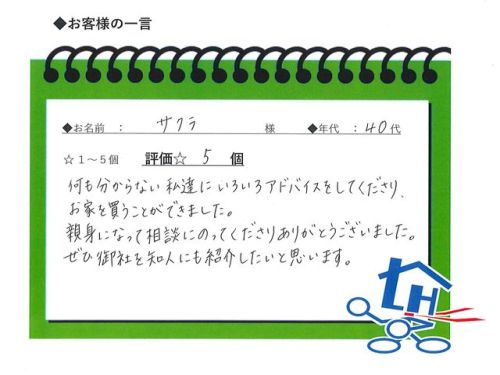 ◆お客様の一言
◆お名前 ： サクラ 様 ◆年代 ： 40代
☆1～5個 評価☆ 5 個
何も分からない私達にいろいろアドバイスをしてくださり、
お家を買うことができました。
親身になって相談にのってくださりありがとうございました。
ぜひ御社を知人にも紹介したいと思います。
LH